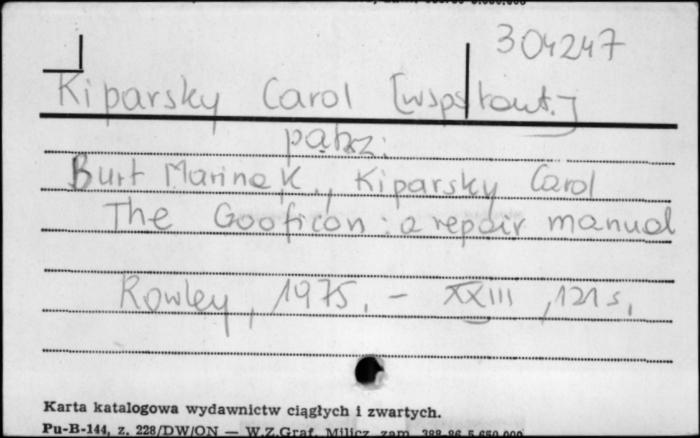 304247
Kiparsky Carol [współaut.]
patrz:
Burt Marina K., Kiparsky Carol
The Gooficon : a repair manual
Rowley, 1975. - XXIII, 121 s.
Karta katalogowa wydawnictw ciągłych i zwartych.
Pu-B-144, z. 228/DW/ON — W.Z.Graf. Milicz, zam. 388-86 5.650.000